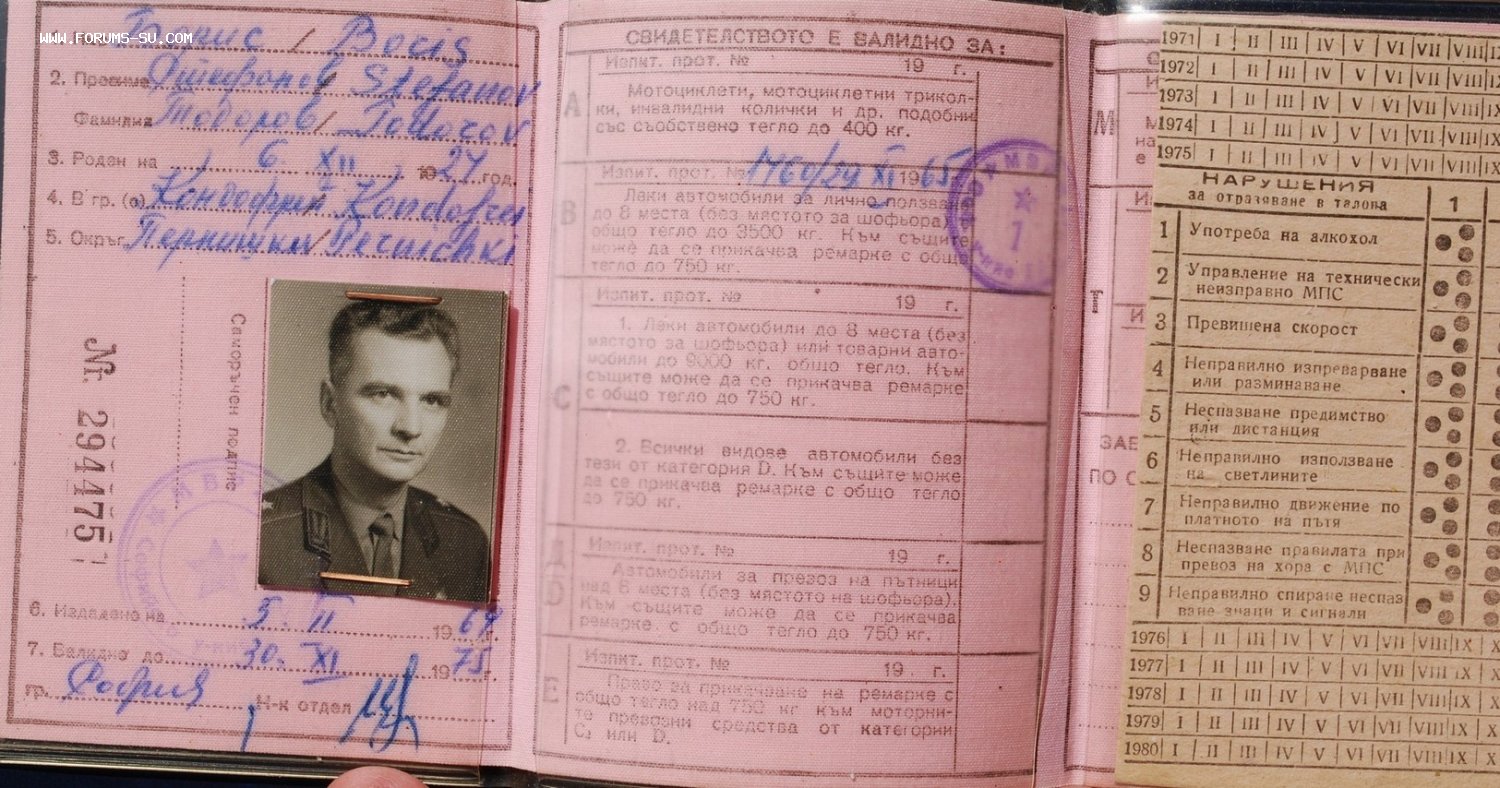 www.forums-su.com
Борис / Boris
2. Презиме Стефанов Stefanov
Фамилия Тодоров / Todorov
3. Роден на 6. XII 1927 год.
4. В гр. (с)
5. Окръг Пернишки
Nr. 294475
Саморъчен подпис
МВР
6. Издадено на 5. II 19 г.
7. Валидно до 30. XI 1975 г.
гр. София Н-к отдел
СВИДЕТЕЛСТВОТО Е ВАЛИДНО ЗА:
Изпит. прот. № 19 г.
A
Мотоциклети, мотоциклетни трикол-
ки, инвалидни колички и др. подобни
със собствено тегло до 400 кг.
Изпит. прот. № 1760/29 XI 1965
B
Леки автомобили за лично ползване
до 8 места (без мястото за шофьора)
общо тегло до 3500 кг. Към същите
може да се прикачва ремарке с общо
тегло до 750 кг.
МВР
1
Изпит. прот. № 19 г.
C
1. Леки автомобили до 8 места (без
мястото за шофьора) или товарни авто-
мобили до 9000 кг. общо тегло. Към
същите може да се прикачва ремарке
с общо тегло до 750 кг.
2. Всички видове автомобили без
тези от категория D. Към същите може
да се прикачва ремарке с общо тегло
до 750 кг.
Изпит. прот. № 19 г.
Д
D
Автомобили за превоз на пътници
над 8 места (без мястото на шофьора).
Към същите може да се прикачва
ремарке с общо тегло до 750 кг.
Изпит. прот. № 19 г.
E
Право за прикачване на ремарке с
общо тегло над 750 кг към моторни-
те превозни средства от категории
C₂ или D.
М
Т
ЗАБ
ПО С
1971 I II III IV V VI VII VIII IX
1972 I II III IV V VI VII VIII IX
1973 I II III IV V VI VII VIII IX
1974 I II III IV V VI VII VIII IX
1975 I II III IV V VI VII VIII IX
НАРУШЕНИЯ
за отразяване в талона
1
1 Употреба на алкохол
2 Управление на технически
неизправно МПС
3 Превишена скорост
4 Неправилно изпреварване
или разминаване
5 Неспазване предимство
или дистанция
6 Неправилно използване
на светлините
7 Неправилно движение по
платното на пътя
8 Неспазване правилата при
превоз на хора с МПС
9 Неправилно спиране неспаз
ване знаци и сигнали
1976 I II III IV V VI VII VIII IX X
1977 I II III IV V VI VII VIII IX X
1978 I II III IV V VI VII VIII IX X
1979 I II III IV V VI VII VIII IX X
1980 I II III IV V VI VII VIII IX X